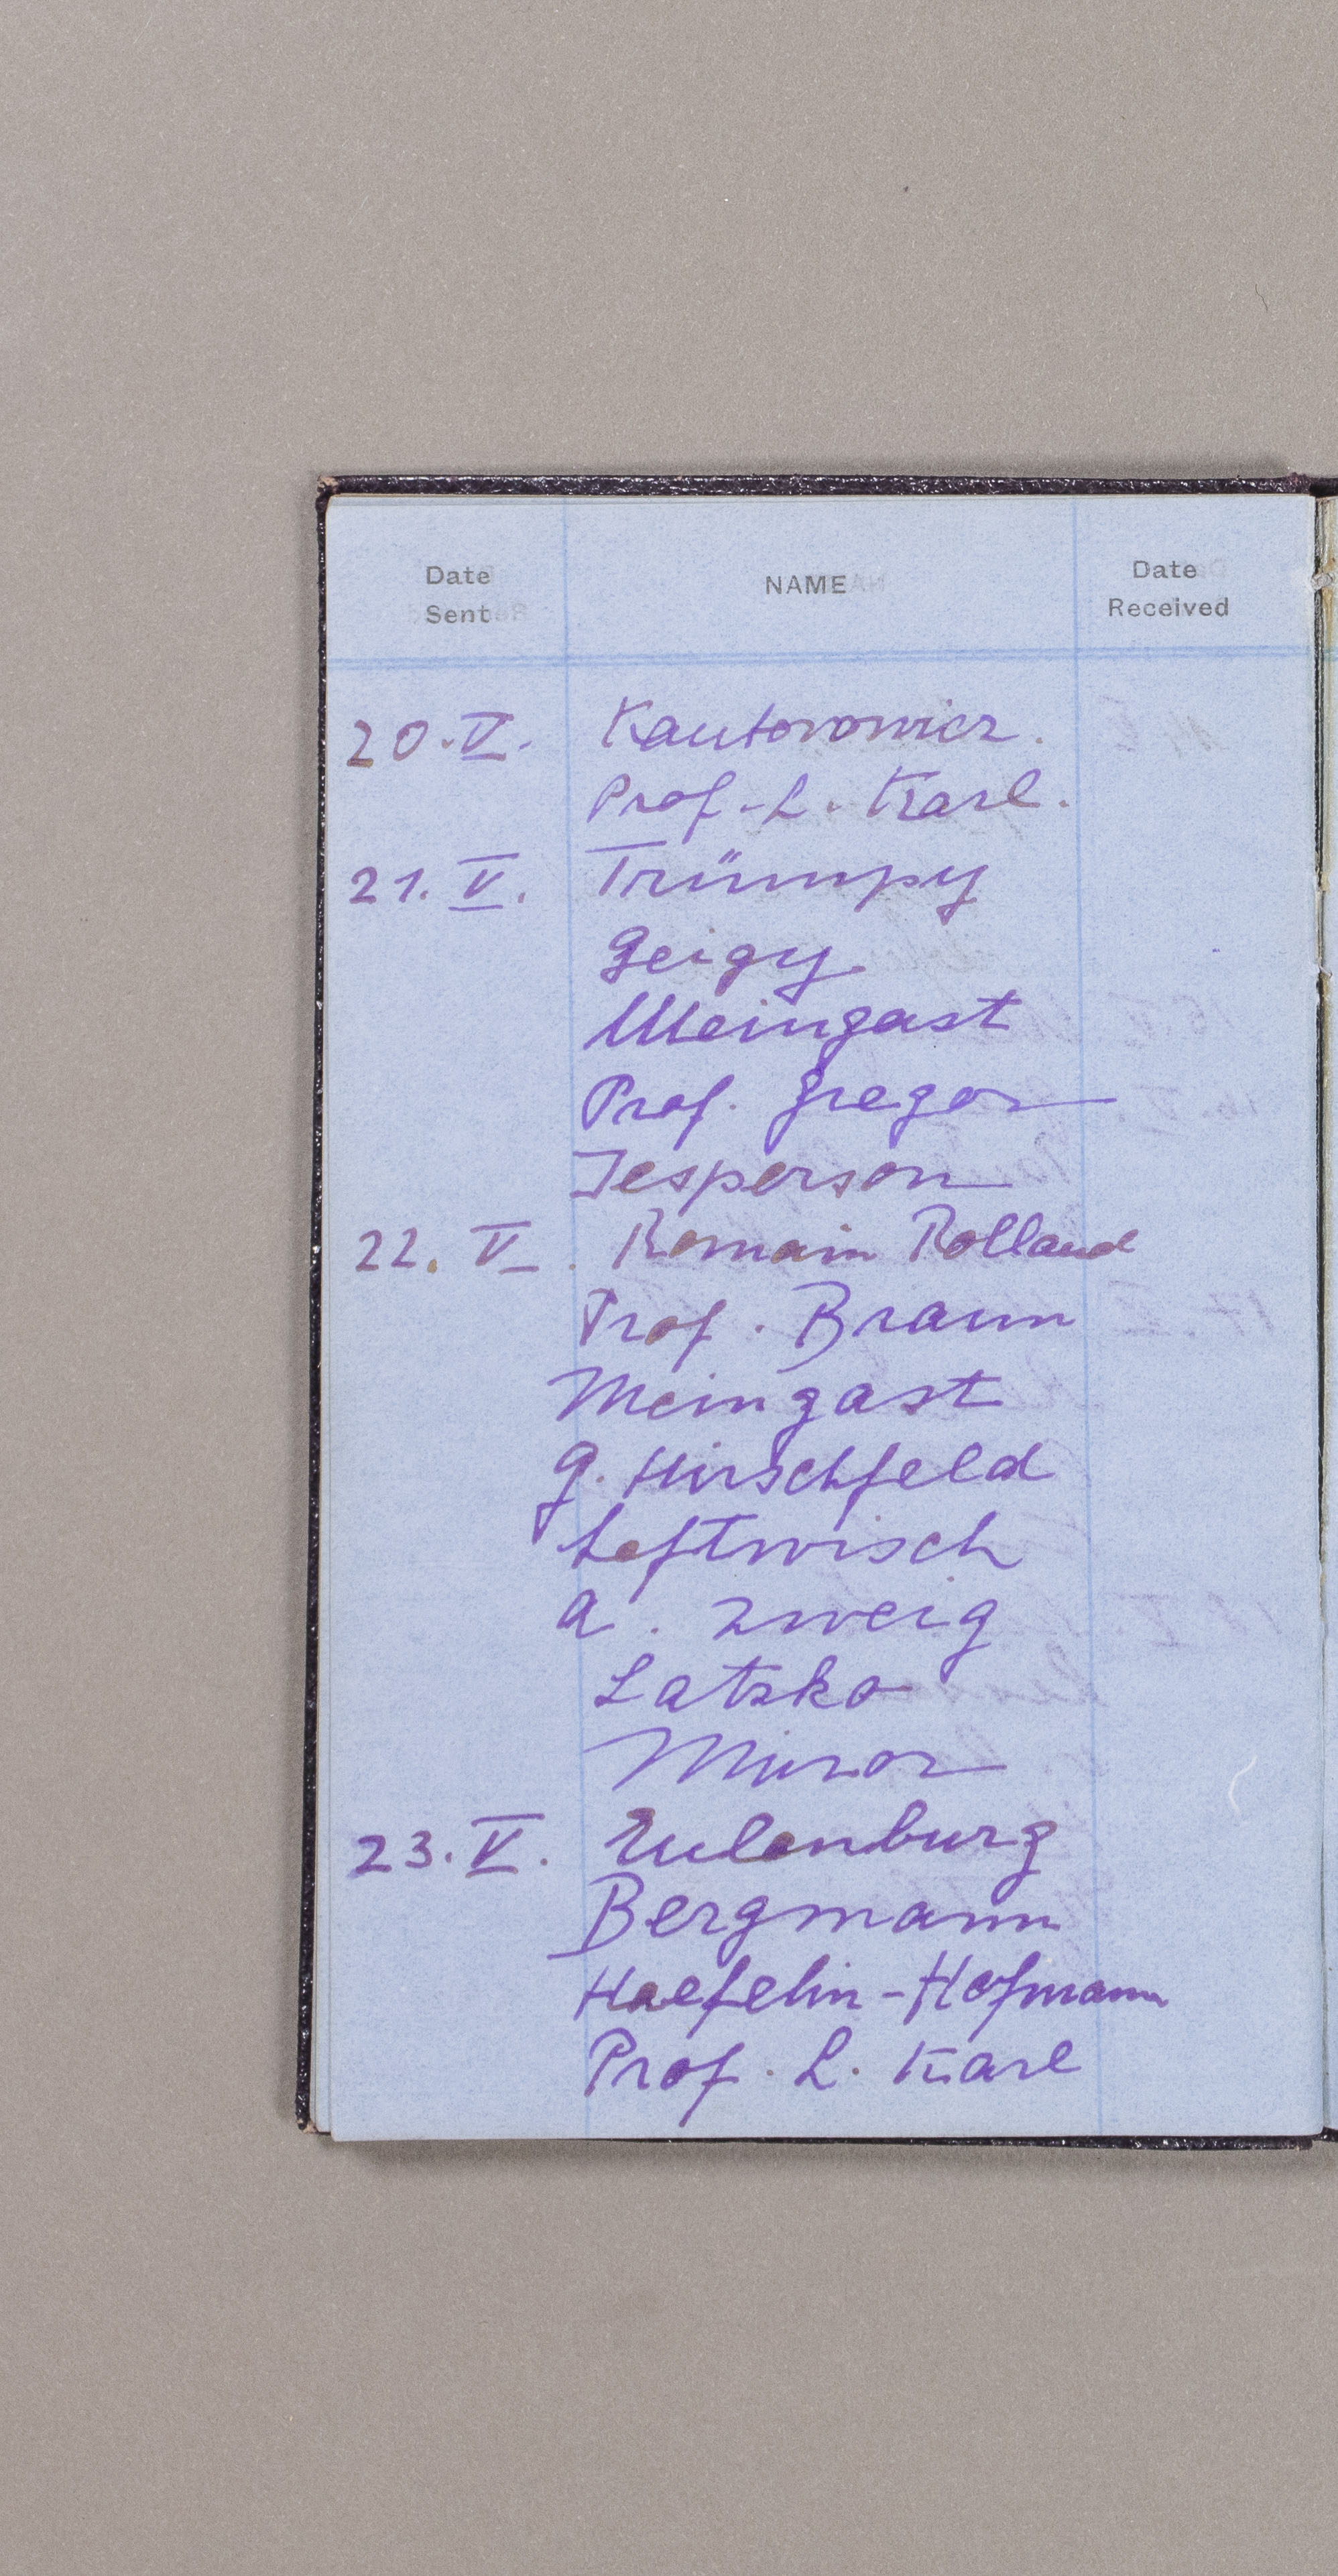 Date Sent NAME Date Received
20. V. Kantorowicz.
Prof. L. Karl.
21. V. Trümpy
Geigy
Meingast
Prof. Gregor
Jesperson
22. V. Romain Rolland
Prof. Braun
Meingast
G. Hirschfeld
Leftwisch
A. Zweig
Latzko
Minor
23. V. Eulenburg
Bergmann
Haefelin-Hofmann
Prof. L. Karl